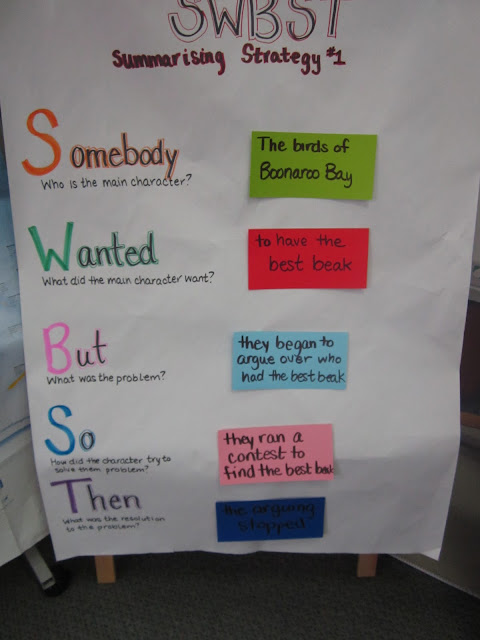 SWBST
Summarising Strategy #1
Somebody
Who is the main character?
The birds of
Boonaroo Bay
Wanted
What did the main character want?
to have the
best beak
But
What was the problem?
they began to
argue over who
had the best beak
So
How did the character try to
solve them problem?
they ran a
contest to
find the best beak
Then
What was the resolution
to the problem?
the arguing
stopped